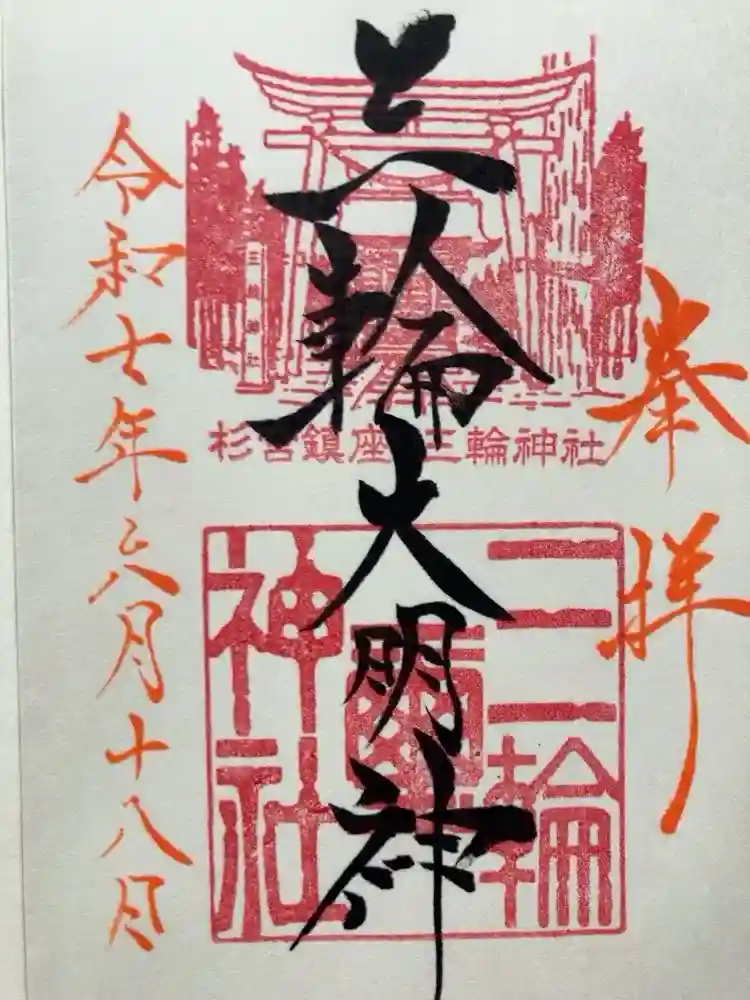 奉拝
三輪大明神
三輪神社
杉宮鎮座 三輪神社
三輪
神社
令和七年六月十八日